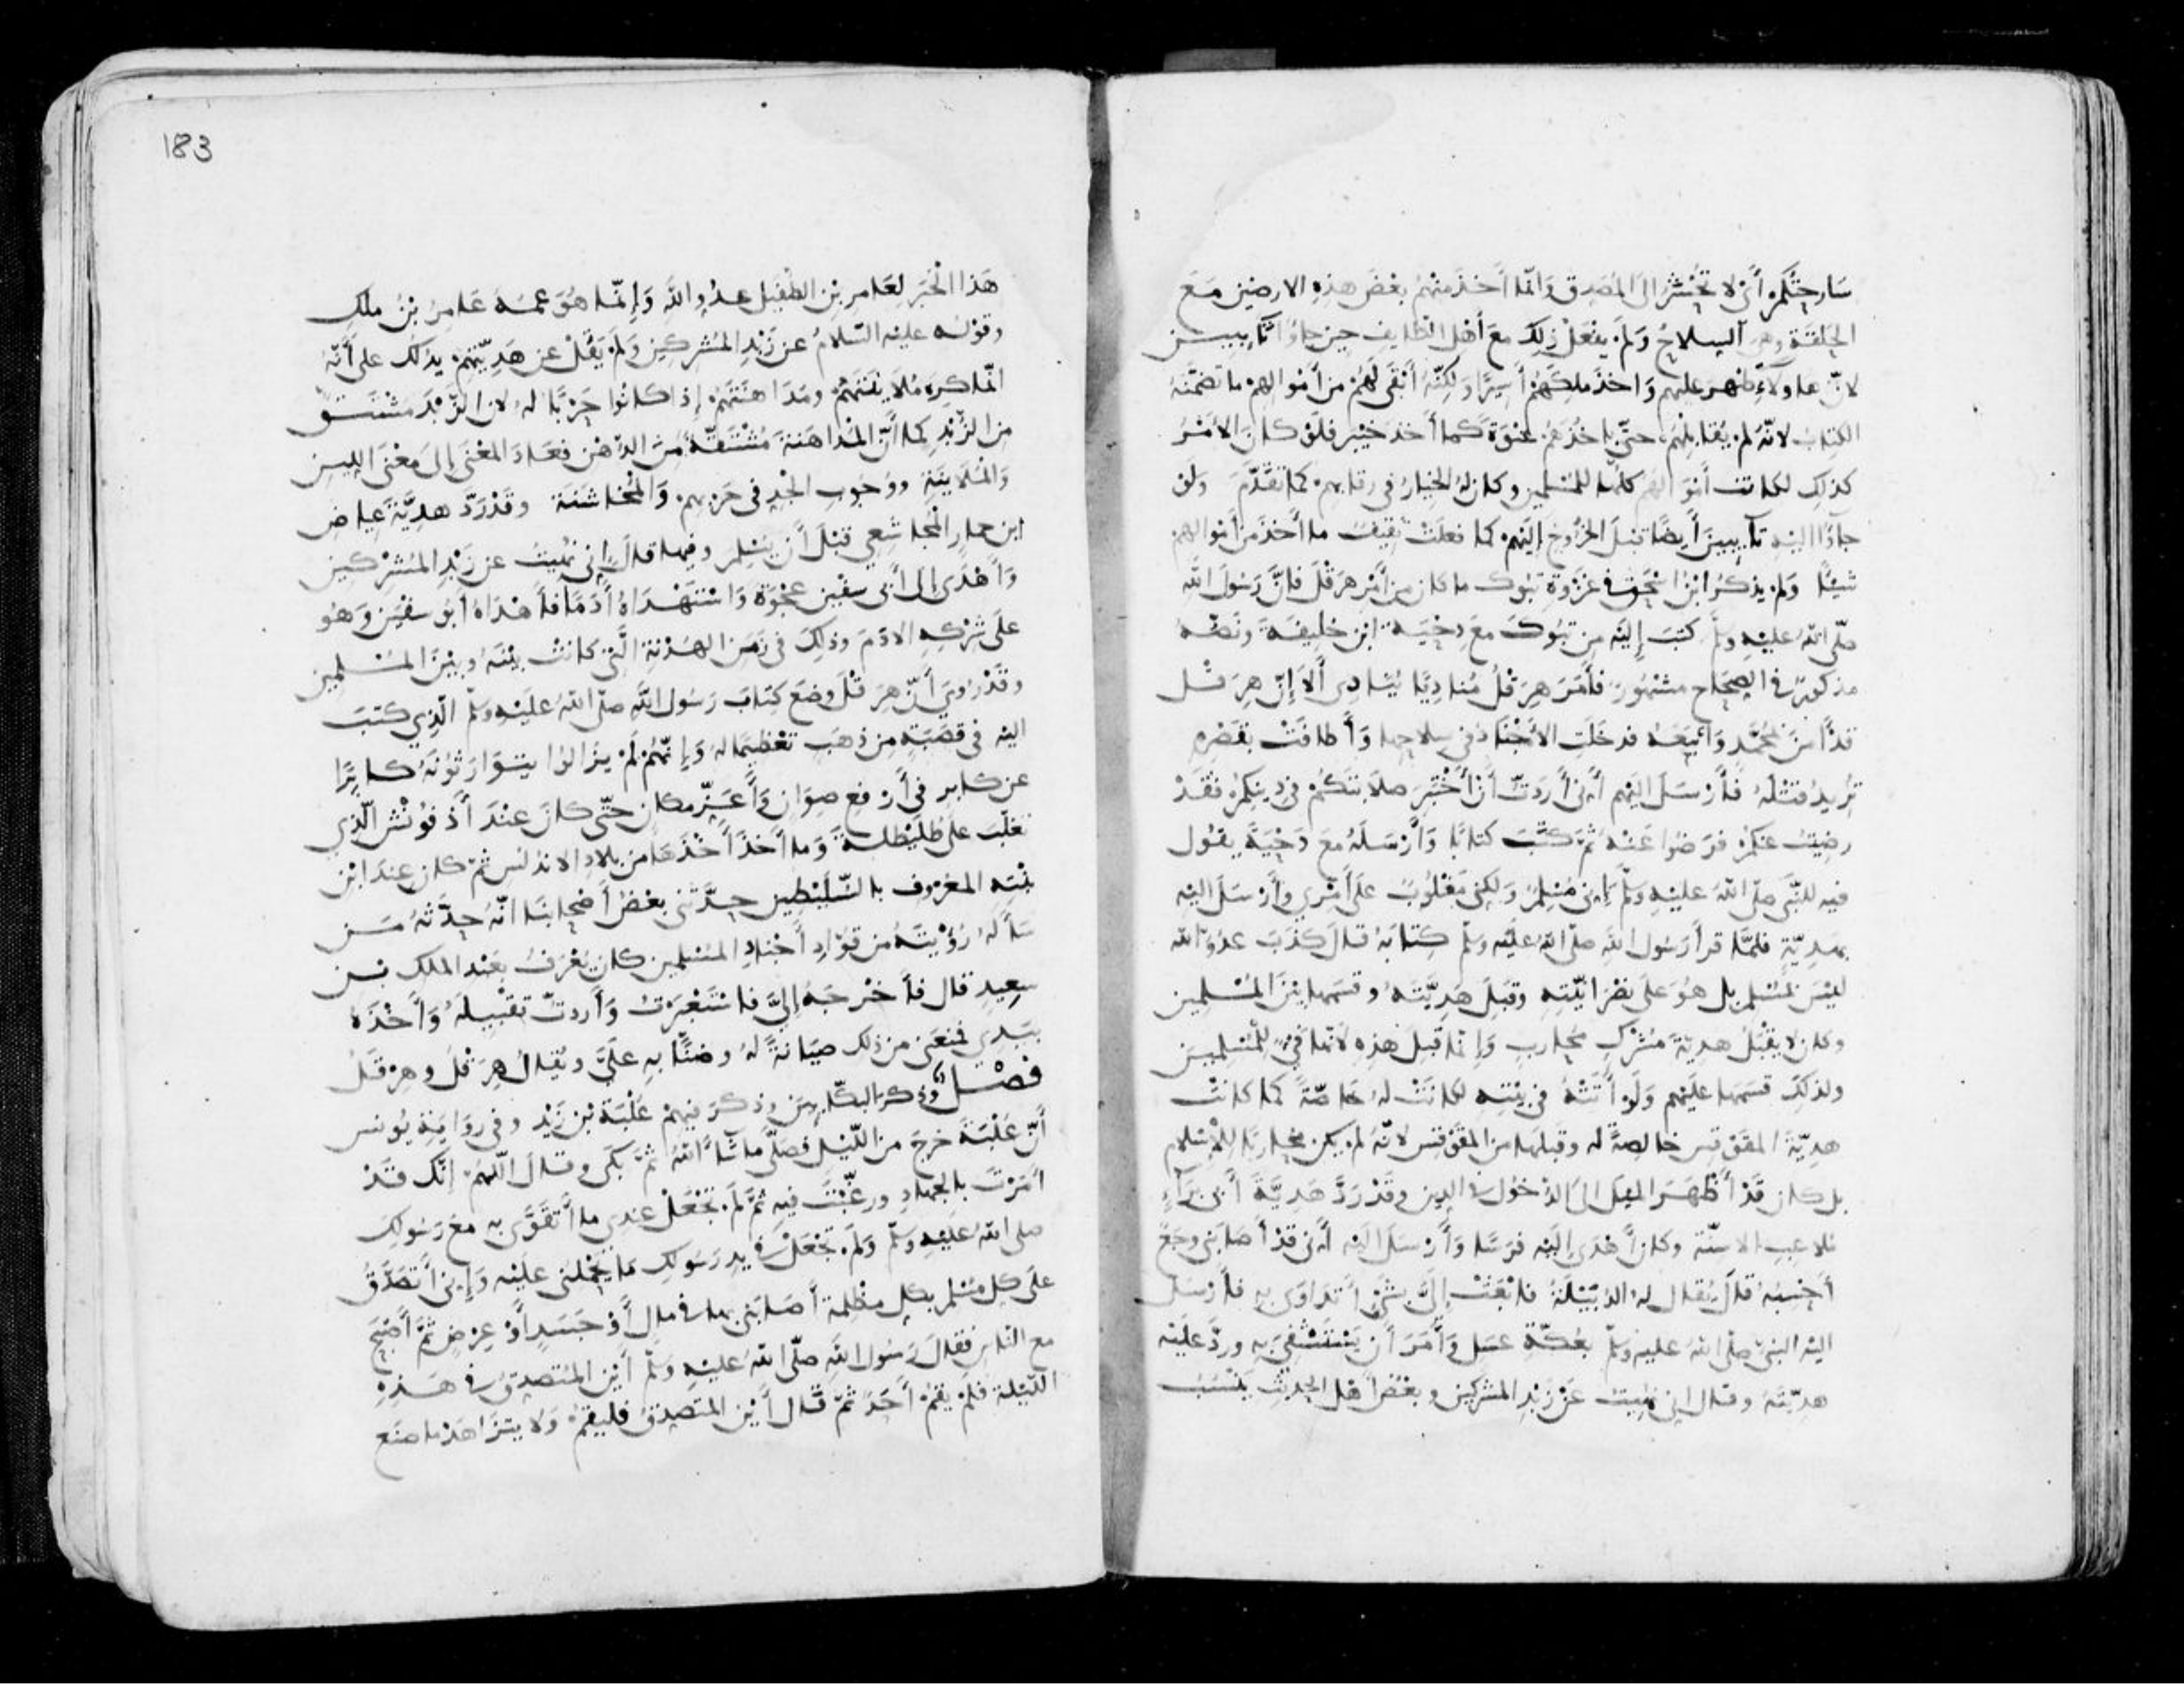 سَارحَتُكم أَنْ لا تُحْشَرَ الى المُصَدِق وَانّما أَخَذَ منْهُم بَعْضَ هذِهِ الارضين مَعَ
الحَلقَة وهى السِلاحُ وَلَم يفْعَلْ ذلِكَ معَ أَهْل الطايف حِين جاؤُا تايبيــن
لانّ هاولآءِ ظهر عليهم وَاخذ ملكهُم أَسِيرًا ولكِنّهُ أَبْقى لَهُم من أَمْوالهِم ما تضمَّنهُ
الكتابُ لانّهُ لم يُقاتِلْهُم حتّى ياخُذَهُم عَنْوَةً كمَا أخذ خيْبر فلَوْ كانَ الأَمْرُ
كذلِك لكانَت أَمْوَالهُم كلُّها للمُسْلمِين وكان لهُ الخِيَارُ فى رِقابهِم كمَا تقَدَّمَ وَلَوْ
جاؤُا اليْهِ تآيبِينَ أَيضًا قبْلَ الخُرُوج إِلَيْهِم كما فعلَتْ ثقِيفٌ ما أَخذَ من أَمْوالهم
شيْئًا وَلم يذكُر ابْنُ اسْحَق فى غزْوَةِ تبُوك ما كان مِن أَمْرِ هرَقْلَ فانَّ رَسُولَ اللّه
صلّى اللّهُ عليْهِ وسلّم كتبَ إِليْه مِن تبُوكَ معَ دِحْيَة ابْنِ خليفَةَ ونَصّهُ
مذكورٌ فى الصِّحَاح مشْهُورٌ فأَمَرَ هِرَقْلُ مُنادِيًا يُنادِى أَلَا إِنّ هِرَقْــل
قدْ أمَنَ بمُحَمَّدٍ وَاتّبعَهُ فدخَلَتِ الأَجْنَادُ فى سِلاحِها وَأَطافَتْ بقَصْرِهِ
تُرِيدُ قتْلَهُ فأَرْسَلَ اليْهِم أَنى أَرَدتّ أَنْ أَخْتَبِرَ صلَابَتَكُمْ فى دِينِكُم فقَدْ
رضِيتُ عنكُم فرَضُوا عَنْهُ ثمّ كتَبَ كتابًا وَأَرْسَلَهُ معَ دَحْيَةَ يقُول
فيهِ للنّبى صلّى اللّهُ عليْهِ وسلّم إِنى مُسْلِمٌ وَلكِنى مَغْلُوبٌ عَلَى أَمْرِي وأَرْسَلَ اليْهِ
بهَدِيّةٍ فلمّا قرأَ رَسُول اللّهِ صلّى اللّهُ علَيْه وسلّم كِتابَهُ قالَ كَذَبَ عدُوُّ اللّه
ليْسَ بمُسْلِم بل هُوَ عَلَى نَصْرَانِيّتهِ وقَبِلَ هَدِيّتَهُ وقسَمَها بيْنَ المُسْلمِين
وكان لا يقْبَلُ هديّةَ مُشْرِكٍ مُحارِبٍ وَإِنّما قَبِلَ هَذِهِ لأنّها فَىْءٌ لِلْمُسْلِمِيــنَ
ولذلِكَ قسَمَها علَيْهِم وَلَوْ أَتَتْهُ فى بيْتِه لكانَتْ لهُ خَاصّةً كمَا كانتْ
هدِيّةُ المقَوْقِسِ خالِصةً له وقبِلَها من المقَوْقس لانّهُ لم يكن محارِبًا لِلْإِسْلام
بل كان قَدْ أَظهَرَ الميْلَ الىَ الدُخول فى الدِين وقَدْ رَدَّ هَدِيَّةَ أَبى بَرَآءٍ
مُلاعِبِ الاسنّة وكان أَهْدَى إِليْهِ فرَسًا وَأَرْسَلَ اليْهِ أَنى قدْ أَصَابَنى وَجَعٌ
أَحْسِبُهُ قالَ يُقال لهُ الدُّبَيْلَةُ فابْعَثْ إِلَىَّ بِشَىْءٍ أَتَداوَى بهِ فأَرْسَلَ
اليْهِ النبىّ صلّى اللهُ عليْه وسلّم بعُكّة عسَل وَأَمَرَهُ أَن يَسْتَشْفِىَ به وردَّ علَيْه
هدِيّتَهُ وقال انى نُهِيتُ عَنْ زبْدِ المشركِين وبعْضُ أَهْل الحدِيثِ يَنْسُبُ
183
هَذا الْخَبَر لِعَامِر بْنِ الطُّفَيْل عدُوِ اللّهِ وَإِنّما هُوَ عَمّهُ عَامِرُ بْنُ ملكٍ
وقوْلـُه عليْه السّلامُ عن زَبْدِ المُشركِين وَلَمْ يَقُلْ عن هَدِيّتِهِمْ يدُلّك على أَنّهُ
انّما كرِهَ مُلَايَنَتَهُمْ ومُدَاهَنَتَهُمْ إذ كانُوا حَرْبًا لهُ لان الزّبْدَ مُشْتَــقٌّ
مِن الزُّبْدِ كما أَنّ المُداهَنةَ مُشْتَقّةٌ مِنَ الدّهْن فعَادَ المعْنَى إلى مَعْنَى اللِيــن
وَالْمُلَايَنَةِ ووُجُوبِ الجِدِ فى حَرْبِهِم وَالْمُخاشَنَة وقَدْ رَدّ هديَّةَ عِيَاض
ابْن حِمارِ الْمُجاشعِى قبْلَ أَن يُسْلِمَ وفيها قالَ إِنى نُهِيتُ عن زَبْدِ المُشْرِكِين
وَأَهْدَى إلى أَبى سفْين عَجْوَةً وَاسْتَهْدَاهُ أُدَمًا فأَهْدَاهُ أَبُو سفْيَن وَهُو
علَى شِرْكِهِ الادَمَ وذلِكَ فى زَمَنِ الهُدْنةِ الَّتى كَانتْ بيْنهُ وبيْنَ المُسْلمِين
وقَدْ رُوىَ أَنّ هِرَقْلَ وضَعَ كِتابَ رَسُولِ اللّهِ صلّى اللّهُ علَيْهِ وسلّم الّذِى كتبَ
اليْهِ فى قصَبَةٍ مِن ذهَبٍ تعْظيمًا لهُ وَإِنّهُمْ لَمْ يزَالوُا يتَوَارَثُونَهُ كابِرًا
عن كابر فى أَرْفع صِوَانٍ وَأَعَزِّ مكان حتّى كانَ عنْدَ أَذفُونْش الّذِي
تغلّبَ على طُلَيْطلــة وَما أَخَذَ أَخْذَهَا من بلادِ الاندلس ثمّ كان عِنَدَ ابْن
بِنْتِهِ المعْرُوف بالسّلَيْطِين حدّثنى بعْضُ أَصْحابنَا انّهُ حدّثَهُ مَــن
سَأَلهُ رُؤْيتَهُ مِن قوّادِ أَجْنادِ المُسْلمِين كان يُعْرَفُ بعَبْدِ الملك بْــن
سعِيدٍ قال فأَخْرجَهُ إِلىَّ فاسْتَعْبَرْتُ وَأَردتّ تقْبِيلَهُ وَأَخْذَهُ
بيَدى فمنعَنى من ذلك صِيَانةً لهُ وضَنًّا بهِ علَىَّ ويُقالُ هِرَقْلُ وهِرْقَلُ
فصْــل وَذكر البكّآيِيـنَ وذكَرَ فيهِمْ عُلْبَةَ بْنَ زَيْد وفى رِوَايَةِ يُونس
أَنّ عُلْبَةَ خرجَ من اللّيْلِ فصَلّى ما شَآءَ اللّهُ ثمَّ بكَى وقالَ اللّهمّ إنّك قَدْ
أمَرْتَ بالجهادِ ورغّبْتَ فيهِ ثمَّ لَم تجْعَلْ عندى ما أَتقَوَّى به معَ رَسُولكَ
صلى اللّهُ عَليْهِ وسلّم وَلَمْ تجْعَلْ فى يدِ رَسُولكِ مَا يَحْمِلُنى علَيْه وَإِنى أَتصَدَّقُ
علَى كلِ مُسْلم بكلِ مظْلِمة أَصَابَنى بها فى مال أَوْ جَسَدٍ أَوْ عِرْضٍ ثمَّ أَصْبَحَ
مع النّاسِ فقالَ رَسُولُ اللّهِ صلّى اللّهُ عليْهِ وسلّم أَيْنَ المُتصدِقُ فى هَــذِهِ
اللّيْلة فلَمْ يقمْ أَحَدٌ ثمّ قال أَيْن المتَصدِقُ فليقُمْ وَلا يتزَاهَدْ ما صنَع